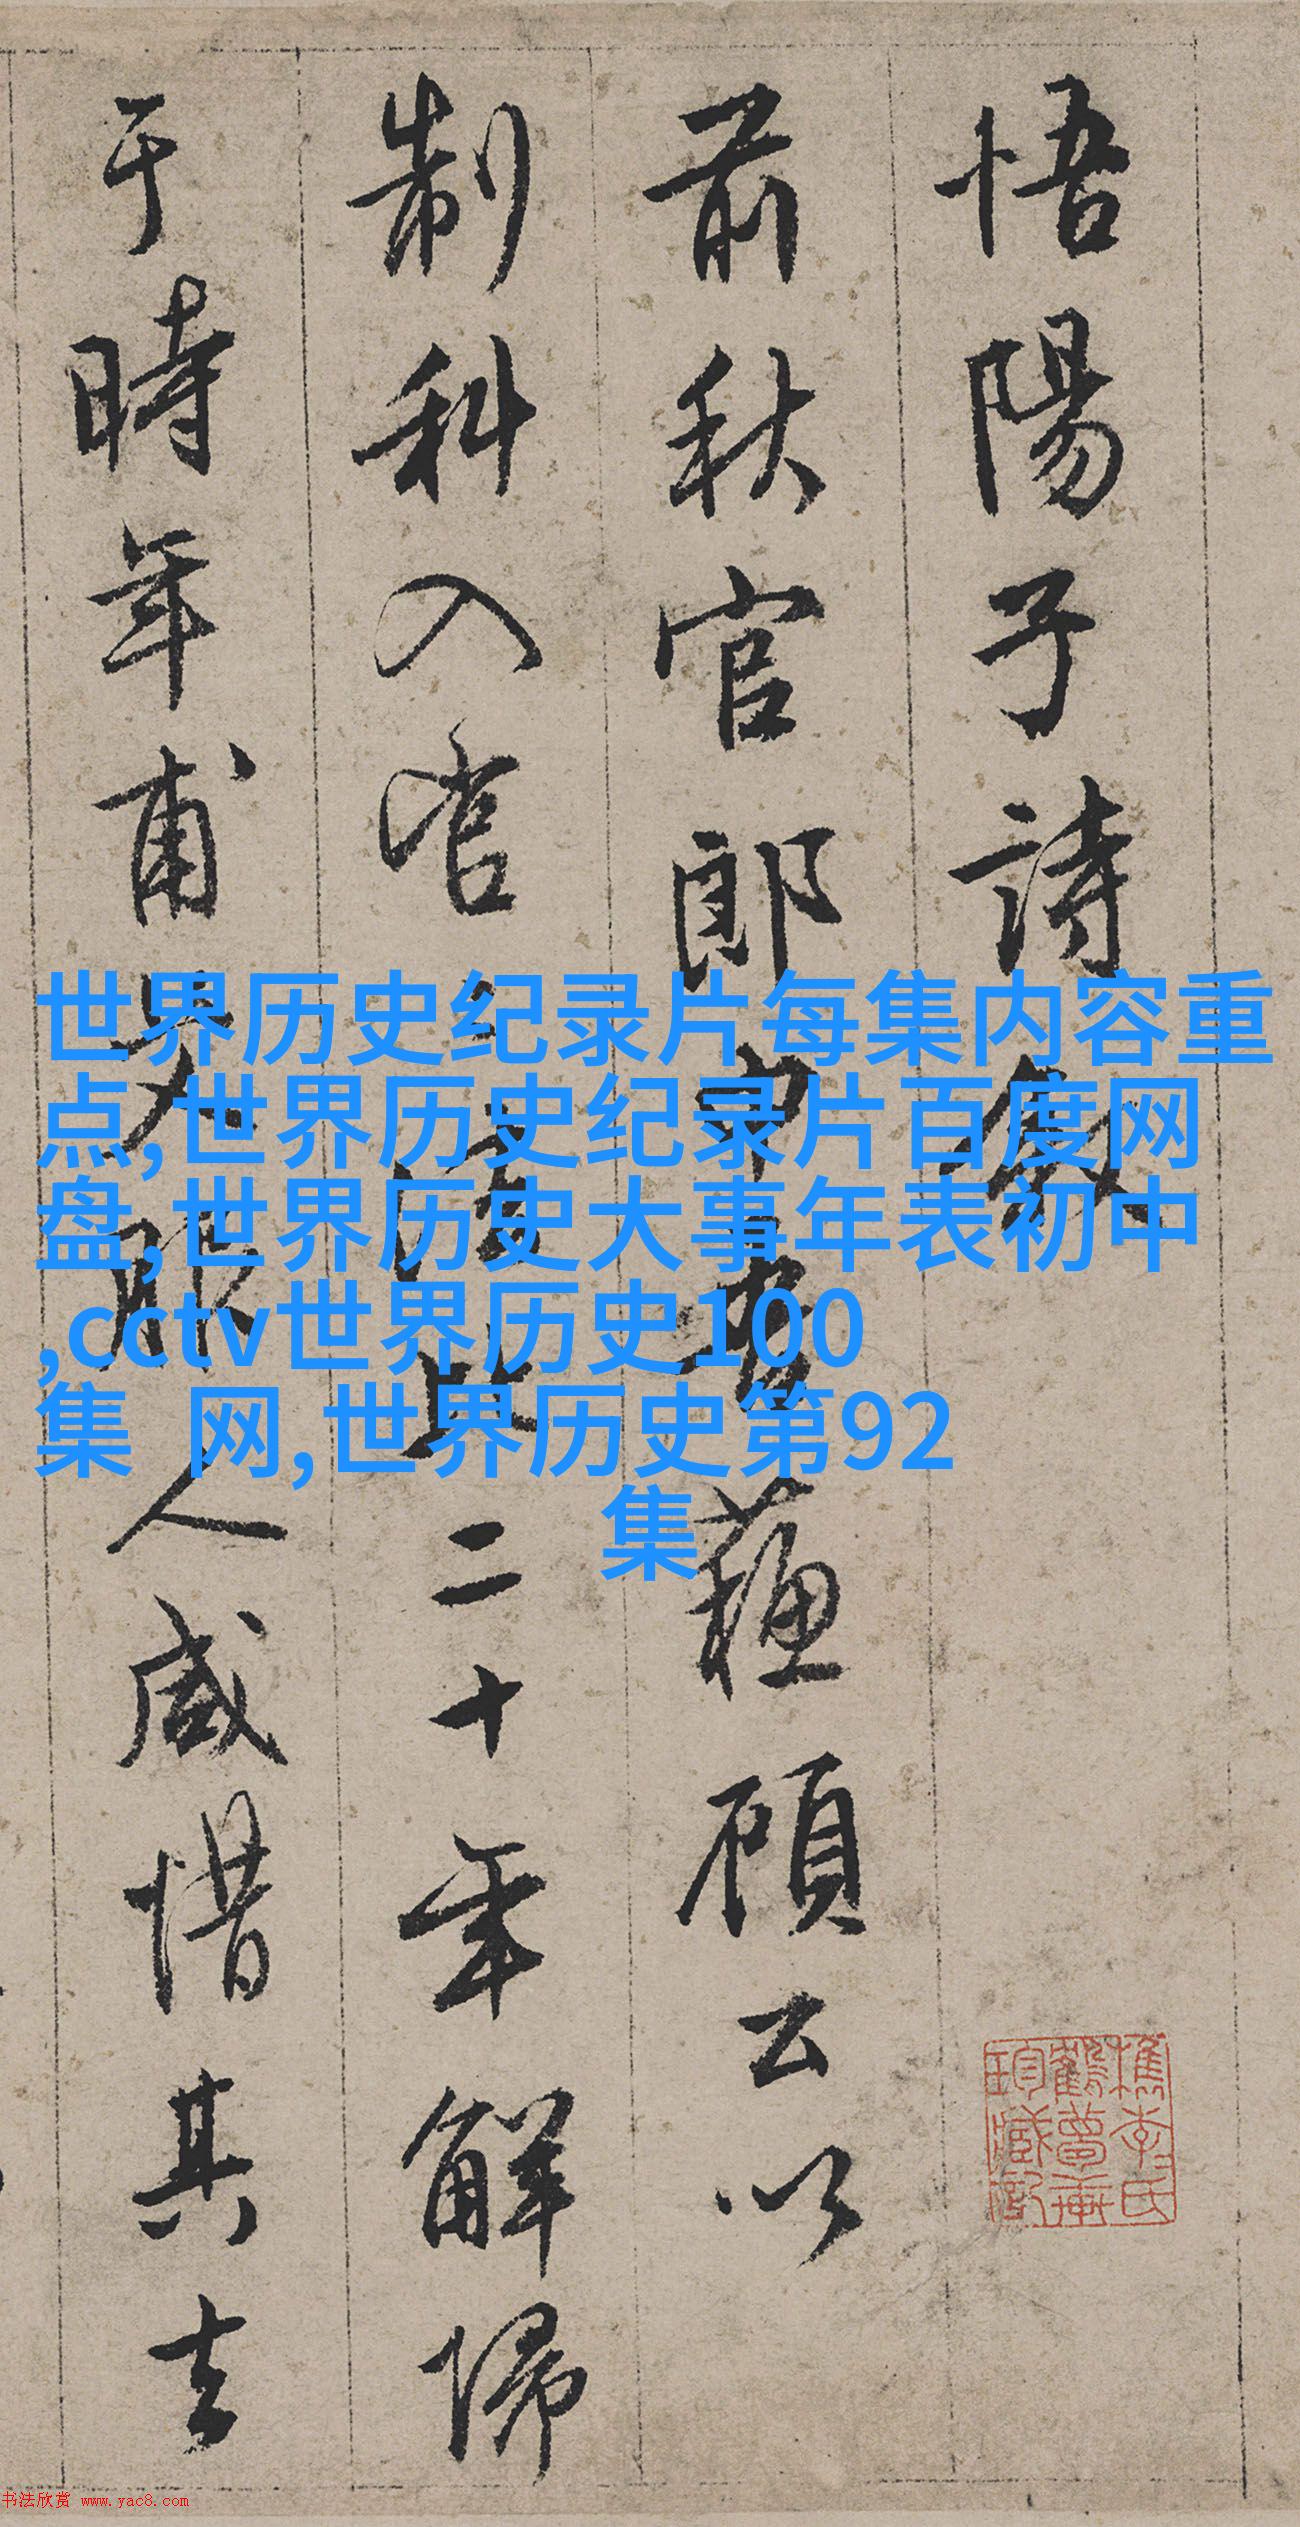 悟陽子詩敘
前秋官郎中蘓顧公以
制科入二十年解歸
于時年甫艾服人咸惜其去
世界历史纪录片每集内容重
点,世界历史纪录片百度网
盘,世界历史大事年表初中
,cctv世界历史100
集 网,世界历史第92
集
檇李氏
鶴夢軒
珍藏記
书法欣赏 www.yac8.com